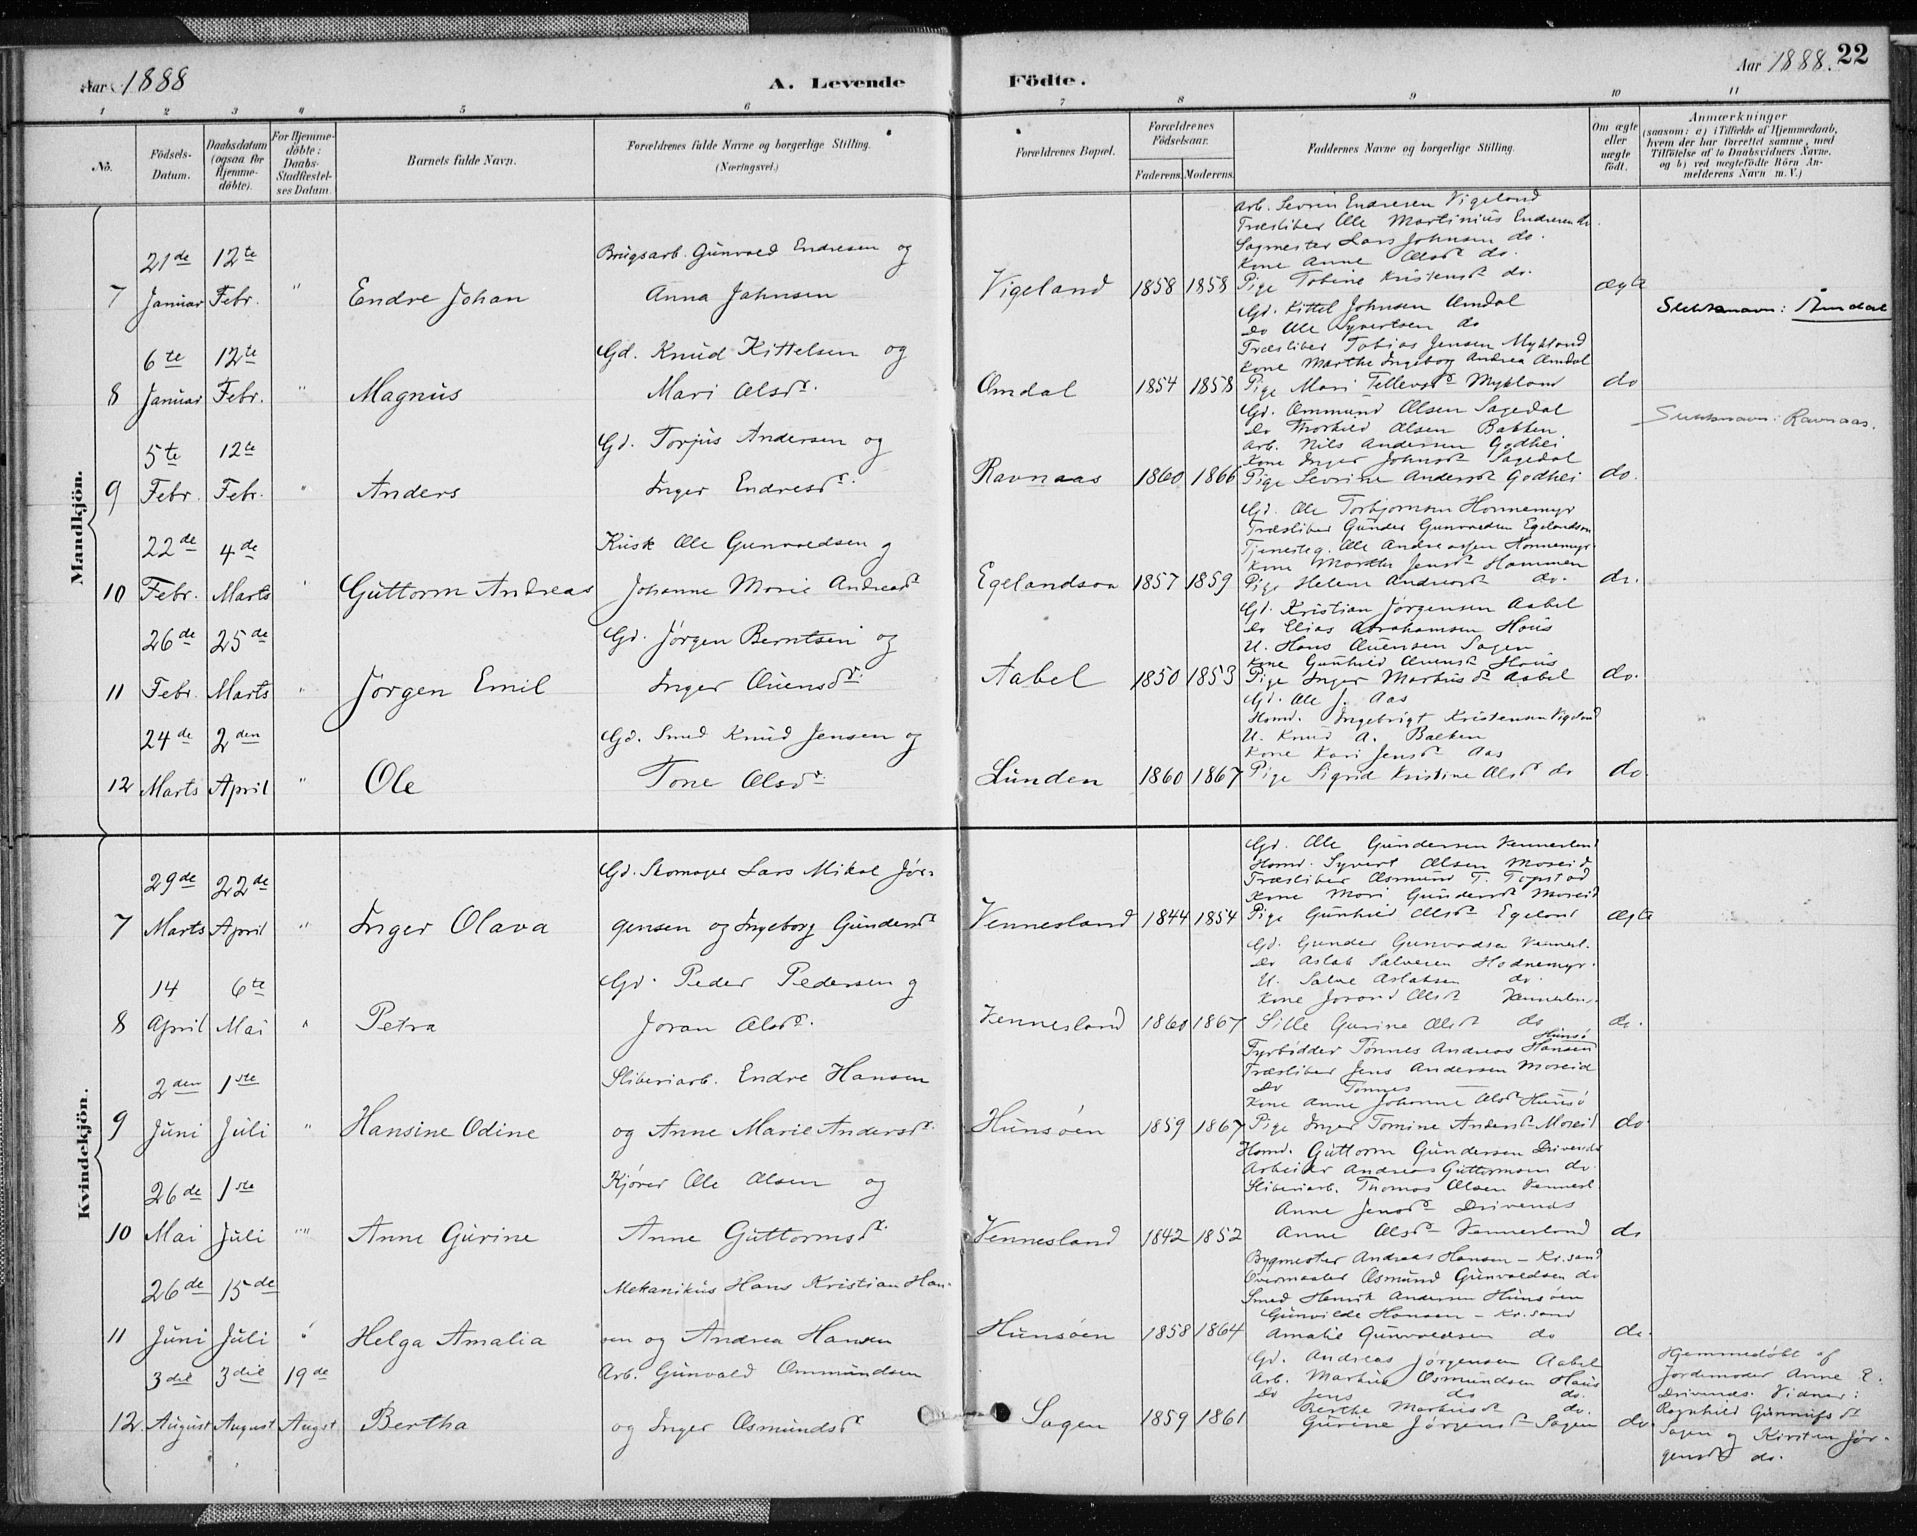 Aar 1888
A. Levende
Födte.
Aar 1888.
22
1 2 3 4 5 6 7 8 9 10 11
No.
Födsels-Datum.
Daabsdatum (ogsaa for Hjemmedöbte).
For Hjemmedöbte: Daabs-Stadfæstelses Datum.
Barnets fulde Navn.
Forældrenes fulde Navne og borgerlige Stilling. (Næringsvei.)
Forældrenes Bopæl.
Forældrenes Födselsaar.
Faderens. Moderens.
Faddernes Navne og borgerlige Stilling.
Om ægte eller uægte födt.
Anmærkninger
(saasom: a) i Tilfælde af Hjemmedaab, hvem der har forrettet samme, med Tilföielse af to Daabsvidners Navne, og b) ved uægtefödte Börn Anmelderens Navn m. V.)
Mandkjön.
7
21de Januar
12te Febr.
"
Endre Johan
Brugsarb. Gunvald Endresen og
Anna Jahnsen
Vigeland
1858 1858
Arb. Sevrin Endresen Vigeland
Træsliber Ole Martinius Endresen do
Sagmester Lars Johnsen do.
Kone Anne Olsdr do.
Pige Tobine Kristensdr do.
ægte
8
6te Januar
12te Febr.
"
Magnus
Gd. Knud Kittelsen og
Mari Olsdr.
Omdal
1854 1858
Gd. Kittel Johnsen Omdal
do Ole Syvertsen do
Træsliber Tobias Jensen Mykland
Kone Marthe Ingeborg Andrea Omdal
Pige Mari Tellevsdr Mykland
do
Slektsnavn: Åmdal
9
5te Febr.
12te Febr.
"
Anders
Gd. Torjus Andersen og
Inger Endresdr.
Ravnaas
1860 1866
Gd. Ommund Olsen Sagedal
do Thorkild Olsen Bakken
Arb. Nils Andersen Godhei
Kone Inger Johnsdr Sagedal
Pige Sevrine Andersdr Godhei
do.
Slektsnavn: Ravnaas.
10
22de Febr.
4de Marts
"
Guttorm Andreas
Kusk Ole Gunvaldsen og
Johanne Marie Andreasdr
Egelandsaa
1857 1859
Gd. Ole Torbjornsen Honnemyr
Træsliber Gunder Gunvaldsen Egelandsaa
Tjenesteg. Ole Andreassen Honnemyr
Kone Marthe Jensdr Hommen
Pige Helene Andreasdr do.
do.
11
26de Febr.
25de Marts
"
Jørgen Emil
Gd. Jørgen Berntsen og
Inger Ouensdr.
Aabel
1850 1853
Gd. Kristian Jørgensen Aabel
do Elias Abrahamsen Hous
U. Hans Ouensen Sagen
Kone Gunhild Ouensdr Hous
Pige Inger Markusdr Aabel
do.
12
24de Marts
2den April
"
Ole
Gd. Smed Knud Jensen og
Tone Olsdr.
Lunden
1860 1867
Gd. Ole J. Aas
Homd. Ingebrigt Kristensen Vigeland
U. Knud A. Bakken
Kone Kari Jensdr Aas
Pige Sigrid Kristine Olsdr do
do.
Kvindekjön.
7
29de Marts
22de April
"
Inger Olava
Gd. Skomager Lars Mikal Jør-
gensen og Ingeborg Gundersdr
Vennesland
1844 1854
Gd. Ole Gundersen Vennesland
Homd. Syvert Olsen Moseid
Træsliber Osmund T. Topstad
Kone Mari Gundersdr Moseid
Pige Gunhild Olsdr Egeland
ægte
8
14 April
6te Mai
"
Petra
Gd. Peder Pedersen og
Joran Olsdr.
Vennesland
1860 1867
Gd. Gunder Gunvaldsen Vennesl.
do Aslak Salvesen Hodnemyr.
U. Salve Aslaksen do.
Kone Jorand Olsdr Vennesl.
Sille Gurine Olsdr do
do.
9
2den Juni
1ste Juli
"
Hansine Odine
Sliberiarb. Endre Hansen
og Anne Marie Andersdr.
Hunsøen
1859 1867
Fyrbødder Tønnes Andreas Hansen Hunsö
Træsliber Jens Andersen Moseid
do Tønnes
Kone Anne Johanne Olsdr Hunsö
Pige Inger Tomine Andersdr Moseid
do.
10
26de Mai
1ste Juli
""
Anne Gurine
Kjörer Ole Olsen og
Anne Guttormsdr.
Vennesland
1842 1852
Homd. Guttorm Gundersen Drivenes
Arbeider Andreas Guttormsen do
Sliberiarb. Thomas Olsen Vennesl.
Anne Jensdr Drivenes
Anne Olsdr Vennesland
do
11
26de Juni
15de Juli
"
Helga Amalia
Mekanikus Hans Kristian Han-
sen og Andrea Hansen
Hunsøen
1858 1864
Bygmester Andreas Hansen - Kr.sand
Overmaaler Osmund Gunvaldsen do
Smed Henrik Andersen Hunsøen
Gunvilde Hansen - Kr.sand
Amalie Gunvaldsen do
do.
12
3die August
3die August
19de Augst
Bertha
Arb. Gunvald Ommundsen
og Inger Osmundsdr
Sagen
1859 1861
Gd. Andreas Jørgensen Aabel
Arb. Markus Osmundsen Haus
do Jens do do.
Berthe Markusdr do.
Gurine Jørgensdr Sagen
do.
Hjemmedöbt af
Jordemoder Anne E.
Drivenes. Vidner:
Ragnhild Gunnufsdr
Sagen og Kirsten Jør-
gensdr do.